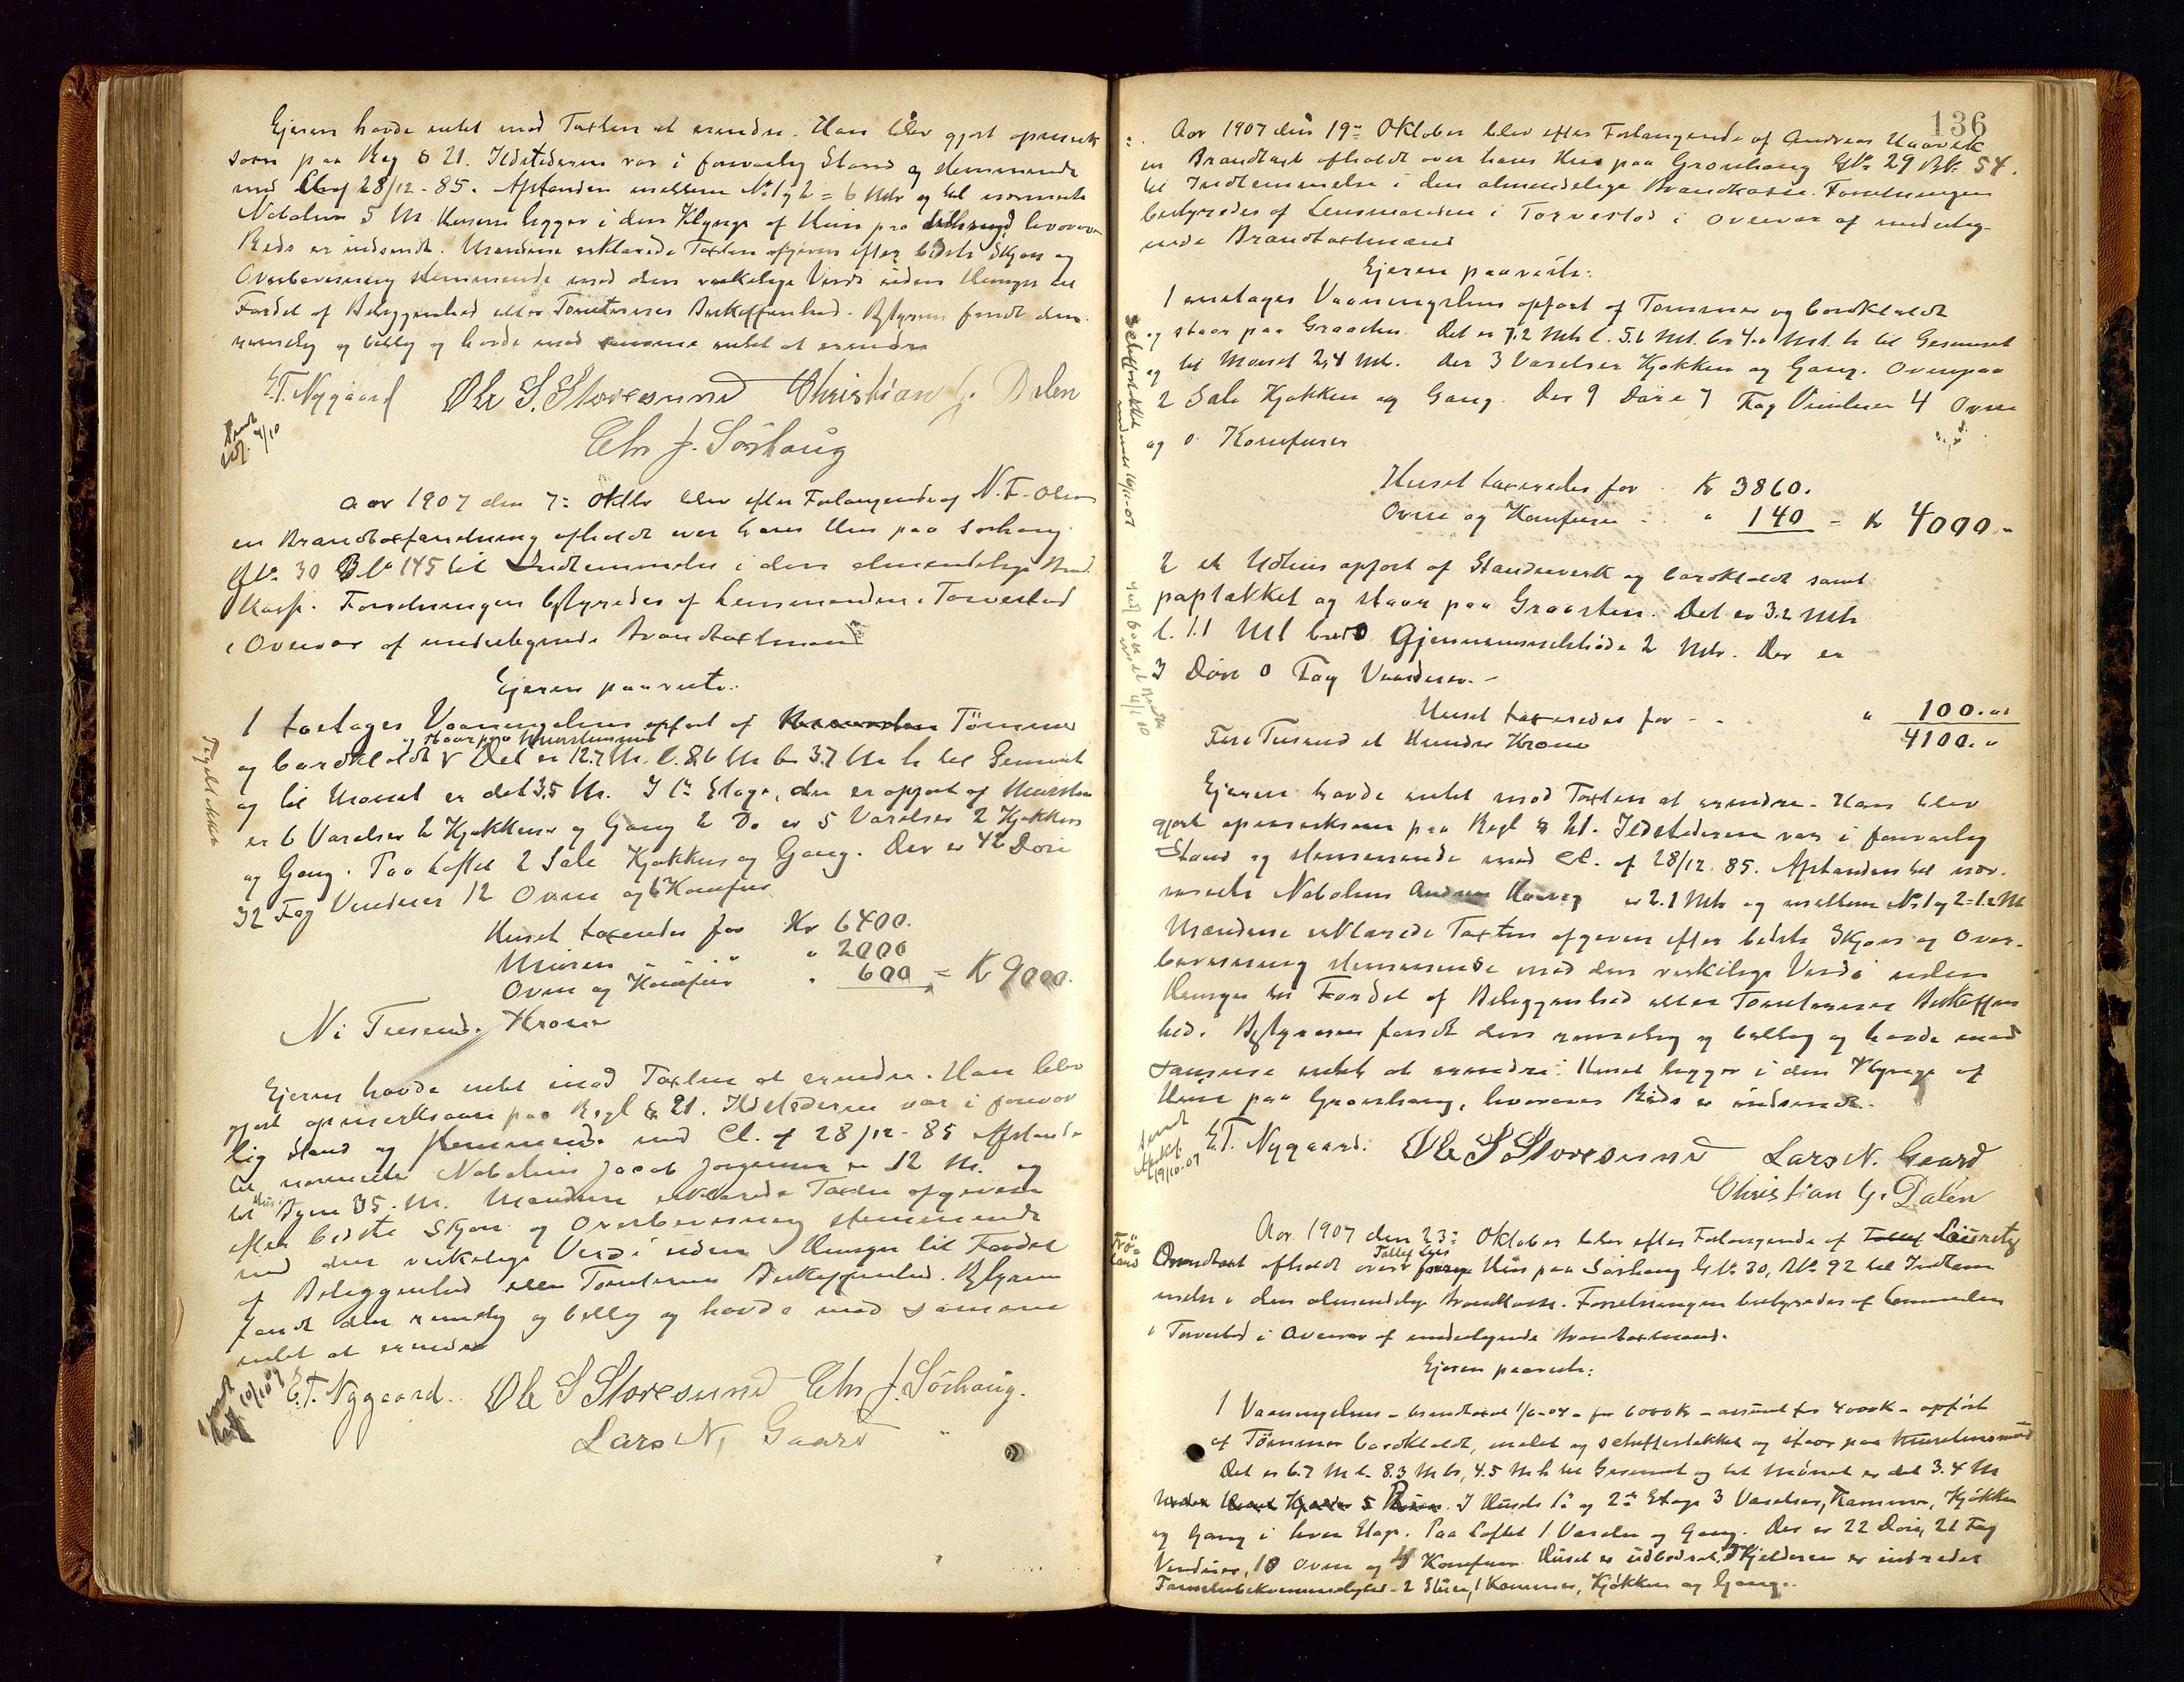 Ejeren havde intet mod Taxten at erindre. Han blev gjort opmærk
som paa Regl § 21. Ildstederne var i forsvarlig Stand og stemmende
med Cl. af 28/12-85. Afstanden mellem No 1 og 2 = 6 Mtr og til nærmeste
Nabohus 5 M. Husene ligger i den Klynge af Huse paa hvorover
Rids er indsendt. Mændene erklærede Taxten afgiven efter bedste Skjøn og
Overbevisning stemmende med den virkelige Verdi uden Hensyn til
Fordel af Beliggenhed eller Tomternes Beskaffenhed. Bestyreren fandt den
rimelig og billig og havde mod samme intet at erindre
E.T. Nygaard Ole S. Storesund Christian G. Dalen
Chr J. Sörhaug
Aar 1907 den 7de Oktbr blev efter Forlangende af N. F. Olsen
en Brandtaxforretning afholdt over hans Hus paa Sørhaug
G No 30 B No 145 til Indlemmelse i den almindelige Brand
kasse. Forretningen bestyredes af Lensmanden i Torvestad
i Overvær af undertegnede Brandtaxtmænd
Ejeren paaviste:
1 toetages Vaaningshus opført af Tömmer
og staar paa Murstensmur
og bordklædt Det er 12.7 M. l. 8.6 M br 3.7 M h til Gesimset
og til Mønet er det 3.5 M. I 1ste Etage, der er opført af Mursten
er 6 Værelser 2 Kjøkkener og Gang 2 Do er 5 Værelser 2 Kjøkken
og Gang. Paa Loftet 2 Sale Kjøkken og Gang. Der er 42 Døre
32 Fag Vinduer 12 Ovne og 6 Komfur
Huset taxeredes for Kr 6400.
Muren - - " " 2000
Ovne og Komfur " 600 = Kr 9000.
Ni Tusende Kroner
Ejeren havde intet mod Taxten at erindre. Han blev
gjort opmerksom paa Regl § 21. Ildstederne var i forsvar
lig Stand og stemmende med Cl. af 28/12-85 Afstande
til nærmeste Nabohus Jacob Jørgensen er 12 M. og
til Byen 35 M. Mændene erklærede Taxten afgiven
efter bedste Skjøn og Overbevisning stemmende
med den virkelige Verdi uden Hensyn til Fordel
af Beliggenhed eller Tomternes Beskaffenhed. Bestyreren
fandt den rimelig og billig og havde mod samme
intet at erindre
E.T. Nygaard. Ole S Storesund Chr J. Sörhaug.
Lars N. Gaard
Tegltækket
136
Aar 1907 den 19de Oktober blev efter Forlangende af Andreas Haavik
en Brandtaxt afholdt over hans Hus paa Gronhaug G No 29 B No 54.
til Indlemmelse i den almindelige Brandkasse. Forretningen
bestyredes af Lensmanden i Torvestad i Overvær af underteg-
nede Brandtaxtmænd
Ejeren paaviste:
1 enetages Vaaningshus opført af Tømmer og bordklædt
og staar paa Graasten. Det er 7.2 Mtr l. 5.6 Mtr. br 4.0 Mtr. h til Gesimset
og til Mønet 2,4 Mtr. Der 3 Værelser Kjøkken og Gang. Ovenpaa
2 Sale Kjøkken og Gang. Der 9 Døre 7 Fag Vinduer 4 Ovne
og 0 Komfurer
Huset taxeredes for Kr 3860.
Ovne og Komfurer - " 140 = Kr 4000.-
2 et Udhus opført af Standerverk og bordklædt samt
paptækket og staar paa Graasten. Det er 3.2 Mtr
l. 1.1 Mtr bred Gjennemsnitshøide 2 Mtr. Der er
3 Døre 0 Fag Vinduer. -
Huset taxeredes for - - " 100.00
Fire Tusend et Hundre Kroner 4100. "
Ejeren havde intet mod Taxten at erindre. Han blev
gjort opmærksom paa Regl § 21. Ildstederne var i forsvarlig
Stand og stemmende med Cl. af 28/12.85. Afstanden til nær-
meste Nabohus Andreas Haavig er 2.1 Mtr og mellem No 1 og 2 = 1.2 M
Mændene erklærede Taxten afgiven efter bedste Skjøn og Over-
bevisning stemmende med den virkelige Verdi uden
Hensyn til Fordel af Beliggenhed eller Tomternes Beskaffen
hed. Bestyreren fandt den rimelig og billig og havde mod
samme intet at erindre. Huset ligger i den Klynge af
Huse paa Gronhaug, hvorover Rids er indsendt.
E.T. Nygaard. Ole S Storesund Lars N. Gaard
Christian G. Dalen
Aar 1907 den 23de Oktober blev efter Forlangende af
Brandtaxt afholdt over Hus paa Sörhaug G No 30, B No 92 til Indlem
melse i den almindelige Brandkasse. Forretningen bestyredes af Lensmanden
i Torvestad i Overvær af undertegnede Brandtaxtmænd.
Ejeren paaviste:
1 Vaaningshus - brandtaxeret 1/6-04 - for 6000 Kr - assureret for 4000 K - opført
af Tömmer bordklædt, malet og skiffertækket og staar paa Murstensmur
Det er 6.7 M l. 8.3 M br, 4.5 M h til Gesimset og til Mønet er det 3.4 M
I Husets 1ste og 2den Etage 3 Værelser, Kammer, Kjökken
og Gang i hver Etage. Paa Loftet 1 Værelse og Gang. Der er 22 Døre, 21 Fag
Vinduer, 10 Ovne og 4 Komfurer. Huset er udbedret, I Kjelderen er indredet
Familiebekvemmelighed - 2 Stuer, 1 Kammer, Kjökken og Gang.